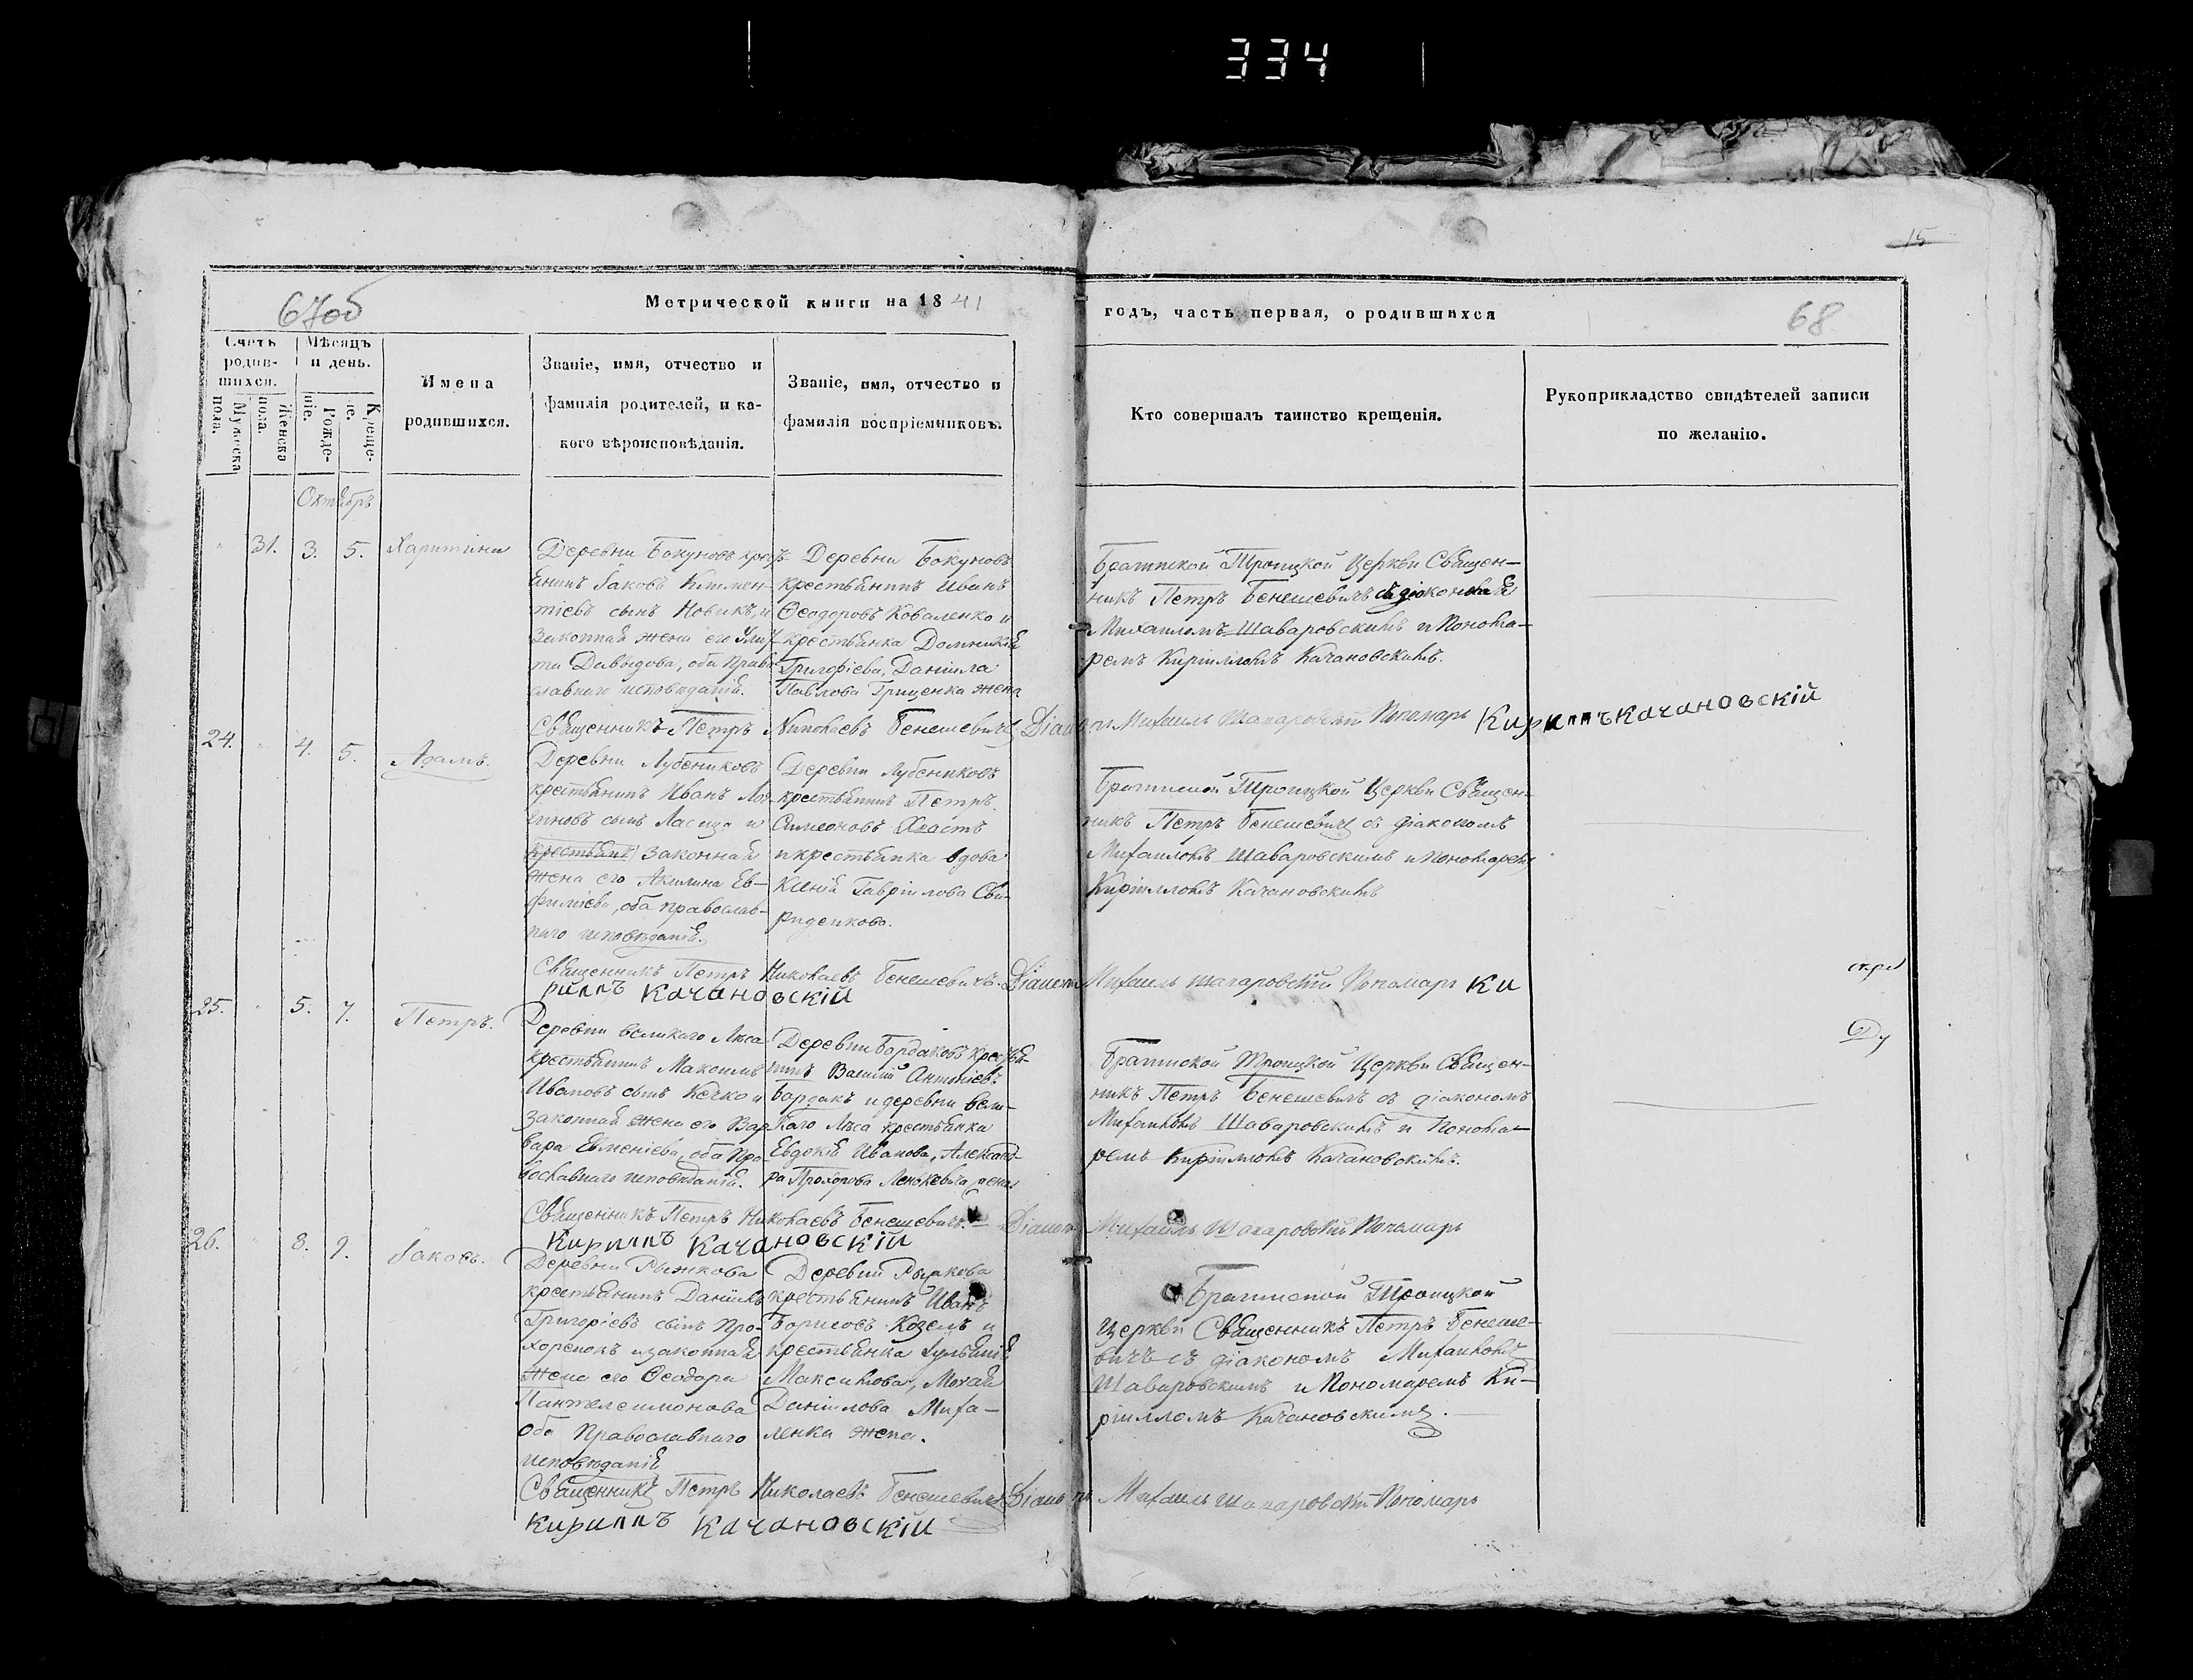 334
15
67об
Метрической книги на 1841
годъ, часть первая, о родившихся
68
Счетъ родив-шихся.
Мѣсяцъ и день.
Мужеска пола.
Женска пола.
Рожде-ніе.
Креще-
Имена
родившихся.
Званіе, имя, отчество и
фамилія родителей, и ка-
кого вѣроисповѣданія.
Званіе, имя, отчество и
фамилія воспріемниковъ.
Кто совершалъ таинство крещенія.
Рукоприкладство свидѣтелей записи
по желанію.
Октябрь
31. 3. 5.
Деревни Бокуновъ
янинъ Іаковъ
тіевъ сынъ Новикъ, и
Законная жена его
та Давыдова, оба Право
славнаго исповѣданія.
Деревни Бокуновъ
крестьянинъ Иванъ
Ѳеодоровъ Коваленко и
крестьянка Домникія
Григоріева, Даніила
Павлова Гриценка жена
Брагинской Троицкой Церкви Священ-
никъ Петръ Бенешевичъ
Михаиломъ Шаваровскимъ и Понома-
ремъ Кирилломъ Качановскимъ.
Священникъ Петръ Николаевъ Бенешевичъ Михаилъ Шаваровскій Пономарь Кириллъ Качановскій
24. 4. 5.
Адамъ.
Деревни Лубениковъ
крестьянинъ Иванъ Лог-
гиновъ сынъ Ласица и
Законная
жена его Акилина Ев-
фиміева, оба православ-
наго исповѣданія.
Деревни Лубениковъ
крестьянинъ Петръ
Симеоновъ Хвостъ
и крестьянка вдова
Ксенія Гавріилова Сви-
риденкова.
Брагинской Троицкой Церкви Священ-
никъ Петръ Бенешевичъ съ діакономъ
Михаиломъ Шаваровскимъ и Пономаремъ
Кирилломъ Качановскимъ
Священникъ Петръ Николаевъ Бенешевичъ. Михаилъ Шаваровскій Пономарь Ки
риллъ Качановскій
25. 5. 7.
Петръ.
Деревни великаго Лѣса
крестьянинъ Максимъ
Ивановъ сынъ Кечко и
законная жена его Вар
вара Евменіева, оба Пра
вославнаго исповѣданія.
Деревни Бордаковъ крестья-
нинъ Василій Антоніевъ
Бордакъ и деревни вели-
каго Лѣса крестьянка
Евдокія Иванова, Александ-
ра Прохорова Ленькевича жена
Брагинской Троицкой Церкви Священ-
никъ Петръ Бенешевичъ съ діакономъ
Михаиломъ Шаваровскимъ и Понома-
ремъ Кирилломъ Качановскимъ.
Священникъ Петръ Николаевъ Бенешевичъ. Михаилъ Шаваровскій Пономарь
Кириллъ Качановскій
26. 8. 9.
Іаковъ.
Деревни Рыжкова
крестьянинъ Даніилъ
Григоріевъ сынъ Про-
хоренокъ и законная
жена его Ѳеодора
Пантелеимонова
оба Православнаго
исповѣданія
Деревни Рыжкова
крестьянинъ Иванъ
Борисовъ Козелъ и
крестьянка Іуліанія
Максимова,
Даніилова Миха-
ленка жена.
Брагинской Троицкой
Церкви Священникъ Петръ Бенеше-
вичъ съ діакономъ Михаиломъ
Шаваровскимъ и Пономаремъ Ки-
рилломъ Качановскимъ.
Священникъ Петръ Николаевъ Бенешевичъ Михаилъ Шаваровскій Пономарь
Кириллъ Качановскій